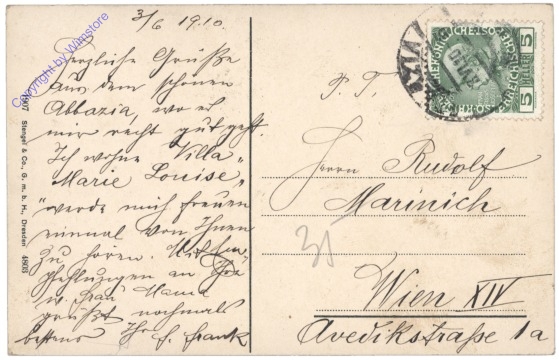 3/6 1910.
Herzliche Grüße
aus dem schönen
Abbazia, wo es
mir recht gut geht.
Ich wohne „Villa
Marie Louise"
werde mich freuen
einmal von Ihnen
zu hören. Mit
pfehlungen an Ihre
u. Frau Mama
grüßt nochmals
bestens Ihr E. Frank
P. T.
Herrn Rudolf
Marinich
Wien XIV
Avedikstraße 1a
31
5 HELLER 5
1907 Stengel & Co., G. m. b. H., Dresden 4893
Copyright by Wimstore